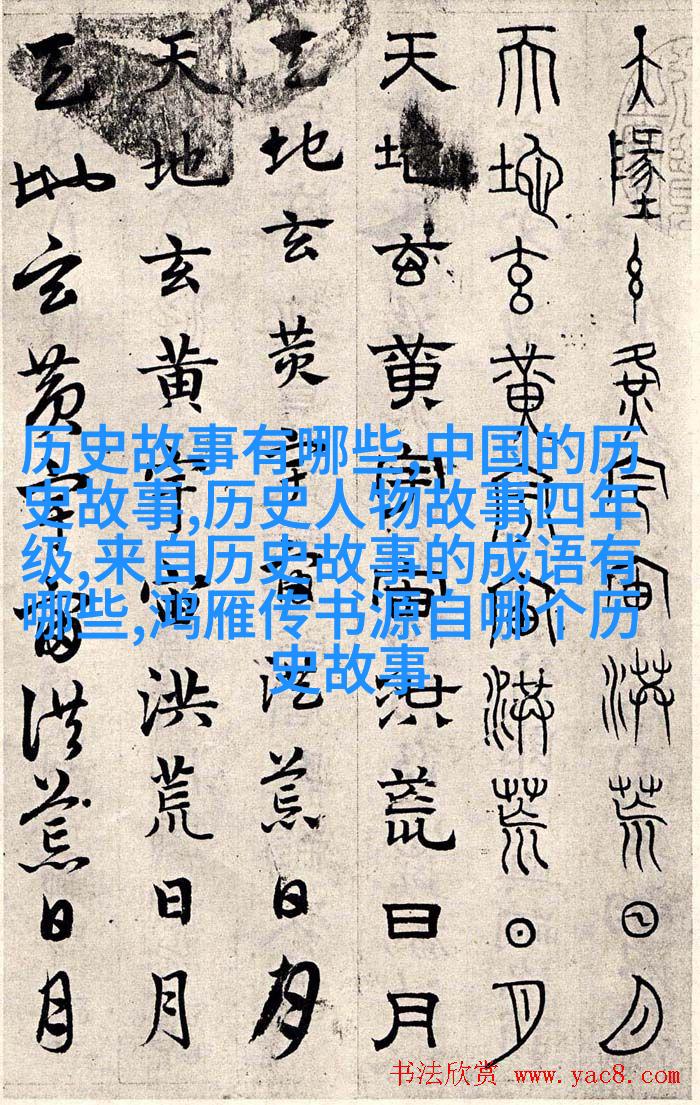 天地玄黄宇宙洪荒日月
天地玄黄宇宙洪荒日月
天地玄黄宇宙洪荒日月
天地玄黄宇宙洪荒日月
天地玄黄宇宙洪荒日月
天地玄黄宇宙洪荒日月
历史故事有哪些,中国的历
史故事,历史人物故事四年
级,来自历史故事的成语有
哪些,鸿雁传书源自哪个历
史故事
书法欣赏 www.yac8.com